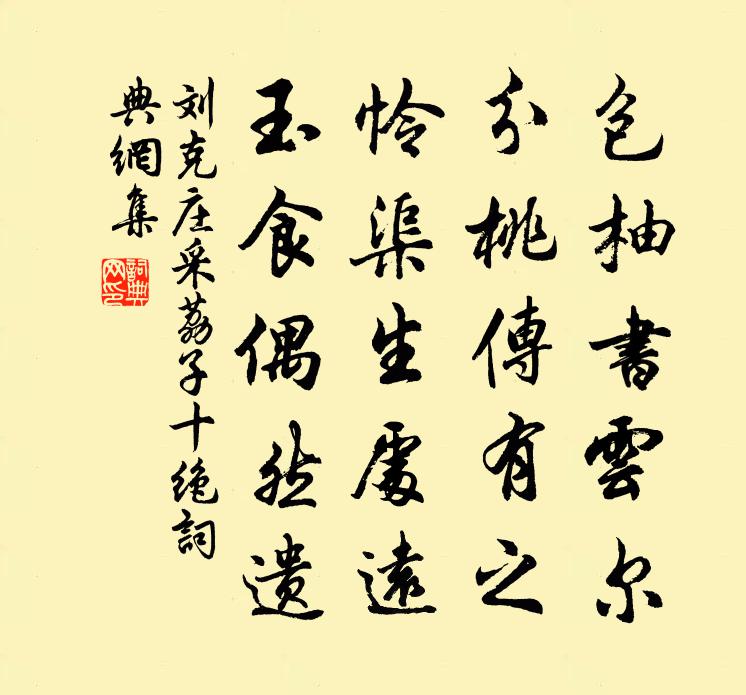 包柚書雲尔
分桃傳有之
怜渠生處遠
玉食偶然遺
刘克庄采荔子十绝詞
典網集
詞典
网印